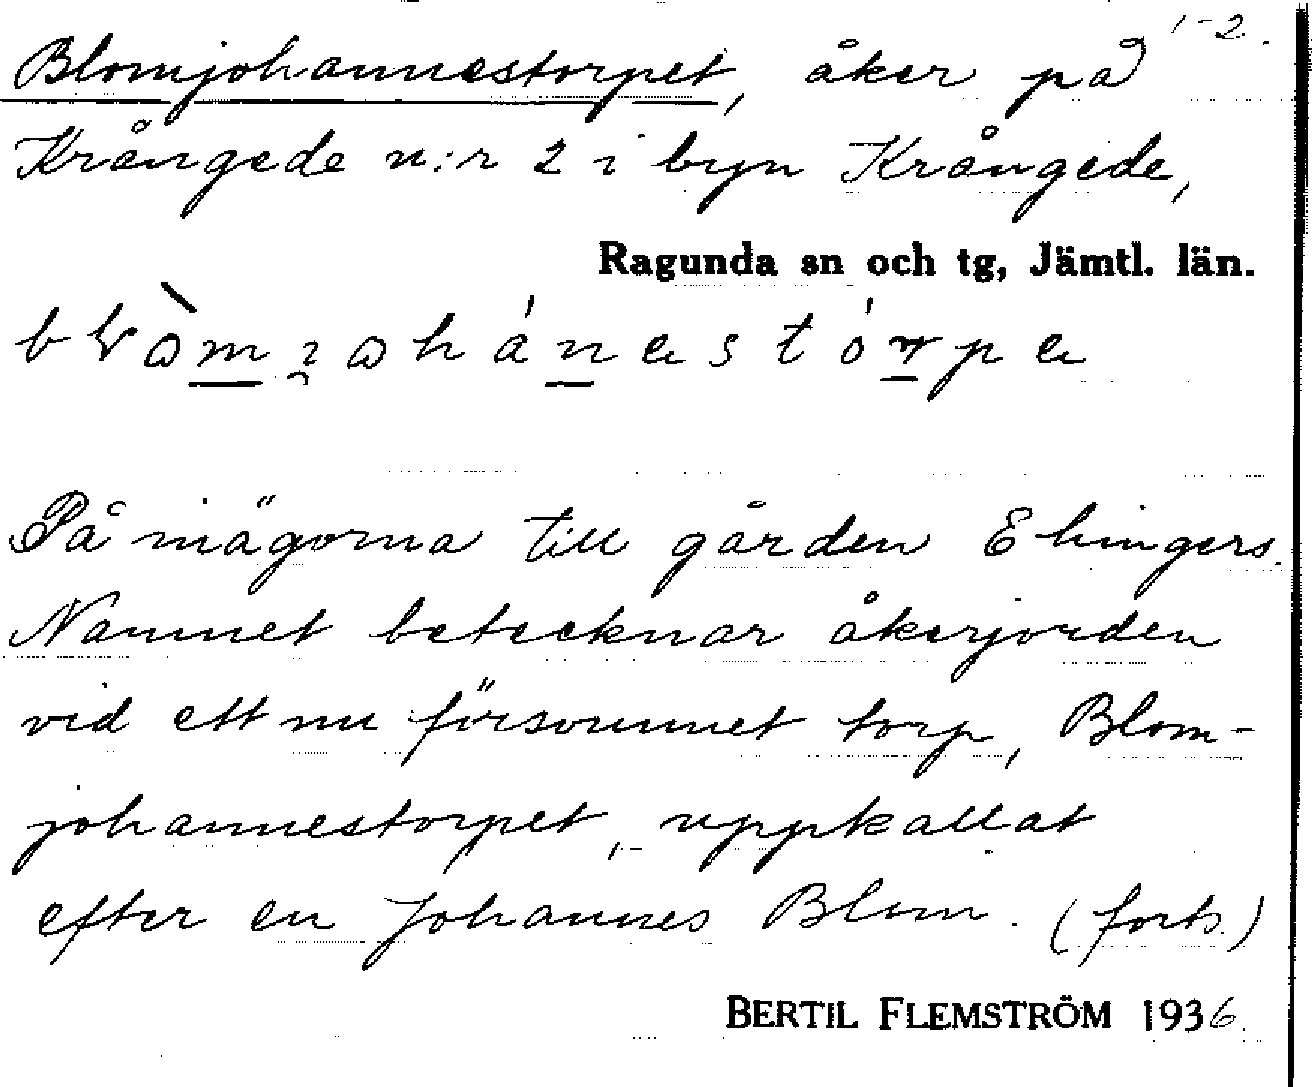 1-2.
Blomjohannestorpet, åker på
Krångede n:r 2 i byn Krångede,
Ragunda sn och tg, Jämtl. län.
På mägorna till gården Ehingers.
Namnet betecknar åkerjorden
vid ett nu försvunnet torp, Blom-
johannestorpet, uppkallat
efter en Johannes Blom. (forts.)
BERTIL FLEMSTRÖM 1936.